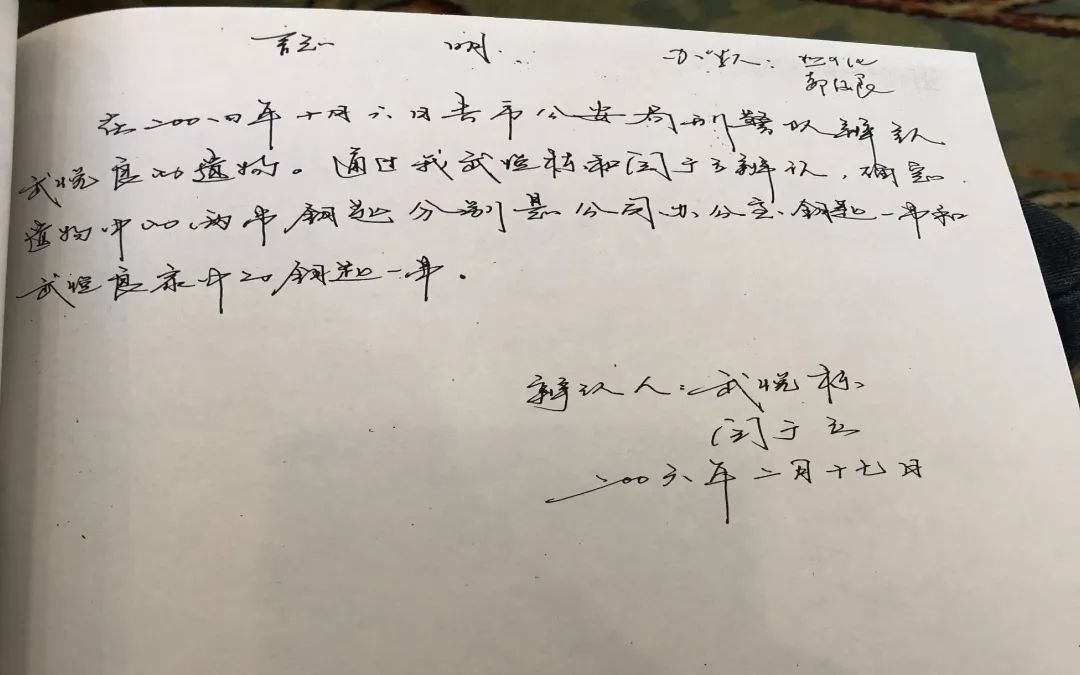 証 明
办案人:
郭伯良
在二00四年十月六日去市公安局刑警队辨认
武悦良的遗物。通过我武悦栋和闫于立辨认,确定
遗物中的两串钥匙分别是公司办公室钥匙一串和
武悦良家中的钥匙一串。
辨认人:武悦栋
闫于立
二00六年二月十七日